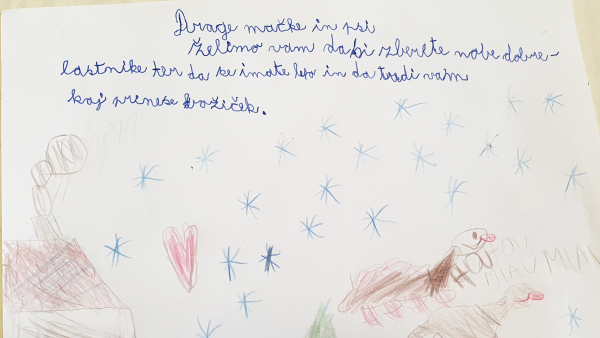 Drage mačke in psi
želimo vam da bi zberete nove dobre-
lastnike ter da se imate lepo in da tudi vam
kaj prinese božiček.
HOU HOU
MIAU MIAU